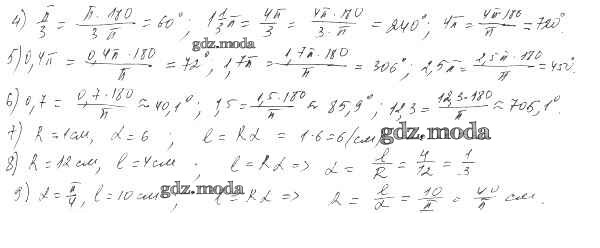 4) π/3 = π·180/3π = 60°; 1 1/3 π = 4π/3 = 4π·180/3·π = 240°; 4π = 4π·180/π = 720°.
gdz.moda
5) 0,4π = 0,4π·180/π = 72°; 1,7π = 1,7π·180/π = 306°; 2,5π = 2,5π·180/π = 450°.
6) 0,7 = 0,7·180/π ≈ 40,1°; 1,5 = 1,5·180/π ≈ 85,9°; 12,3 = 12,3·180/π ≈ 705,1°.
7) R = 1 см, α = 6; l = Rα = 1·6 = 6 (см)
gdz.moda
8) R = 12 см, l = 4 см; l = Rα => α = l/R = 4/12 = 1/3
9) α = π/4, l = 10 см; l = Rα => R = l/α = 10/π = 40/π см.
gdz.moda